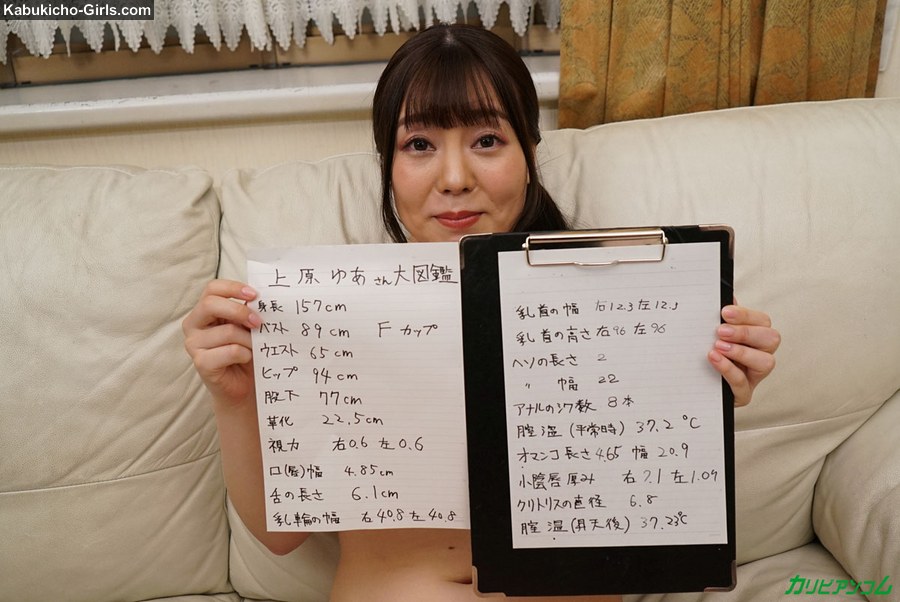 Kabukicho-Girls.com
上原ゆあさん大図鑑
身長 157cm
バスト 89cm Fカップ
ウエスト 65cm
ヒップ 94cm
股下 77cm
革化 22.5cm
視力 右0.6 左0.6
口(唇)幅 4.85cm
舌の長さ 6.1cm
乳輪の幅 右40.8 左40.8
乳首の幅 右12.3 左12.3
乳首の高さ 右96 左96
ヘソの長さ 2
〃 幅 22
アナルのシワ数 8本
膣温(平常時) 37.2℃
オマンコ長さ4.65 幅20.9
小陰唇厚み 右7.1 左1.09
クリトリスの直径 6.8
膣温(昇天後) 37.23℃
カリビアンコム